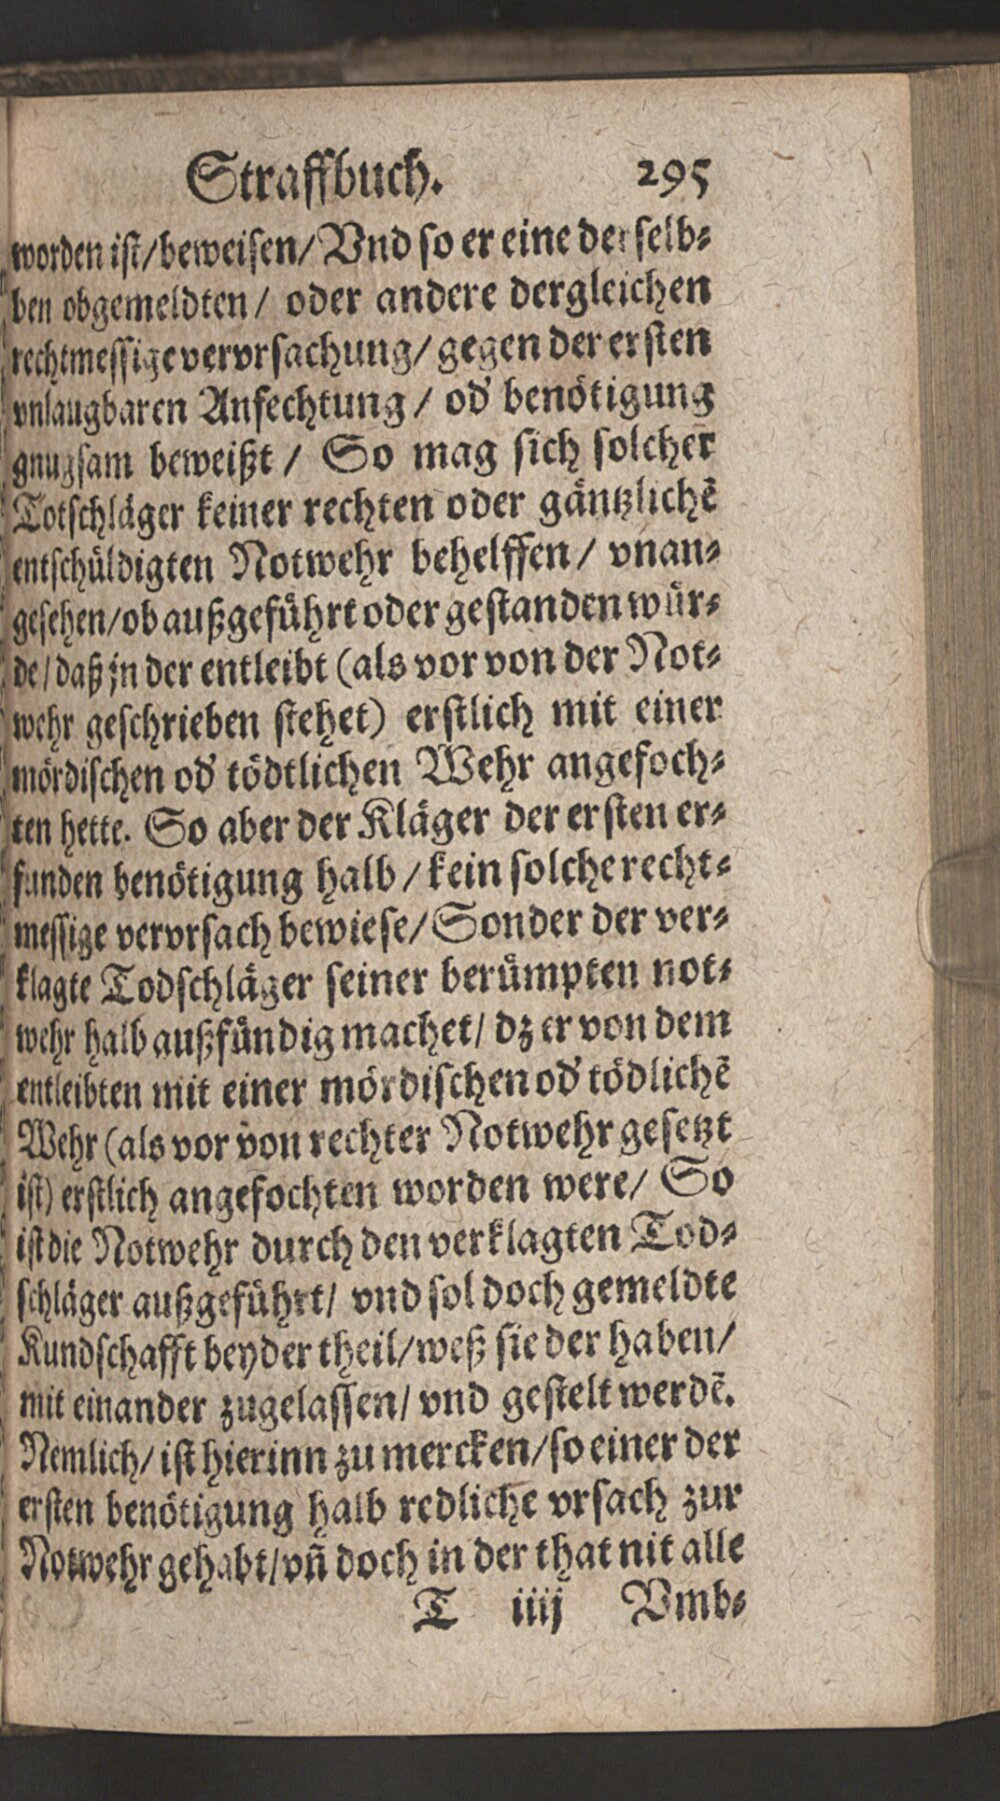 Straffbuch. 295
worden ist/beweisen/Vnd so er eine der selb⸗
ben obgemeldten/ oder andere dergleichen
rechtmessige vervrsachung/gegen der ersten
vnlaugbaren Anfechtung/ od' benötigung
gnugsam beweißt/ So mag sich solcher
Totschläger keiner rechten oder gäntzlichẽ
entschüldigten Notwehr behelffen/ vnan⸗
gesehen/ob außgeführt oder gestanden wür⸗
de/daß jn der entleibt (als vor von der Not⸗
wehr geschrieben stehet) erstlich mit einer
mördischen od' tödtlichen Wehr angefoch⸗
ten hette. So aber der Kläger der ersten er⸗
funden benötigung halb/kein solche recht⸗
messige vervrsach bewiese/Sonder der ver⸗
klagte Todschläger seiner berümpten not⸗
wehr halb außfündig machet/ dz er von dem
entleibten mit einer mördischen od' tödlichẽ
Wehr (als vor von rechter Notwehr gesetzt
ist) erstlich angefochten worden were/ So
ist die Notwehr durch den verklagten Tod⸗
schläger außgeführt/ vnd sol doch gemeldte
Kundschafft beyder theil/weß sie der haben/
mit einander zugelassen/ vnd gestelt werdẽ.
Nemlich/ist hierinn zu mercken/so einer der
ersten benötigung halb redliche vrsach zur
Notwehr gehabt/vñ doch in der that nit alle
T iiij Vmb⸗